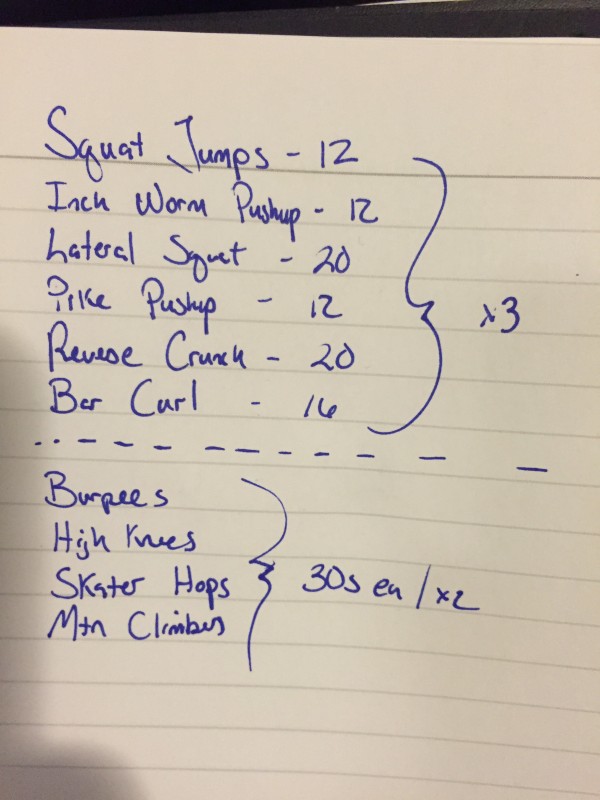 Squat Jumps - 12
Inch Worm Pushup - 12
Lateral Squat - 20
Pike Pushup - 12
Reverse Crunch - 20
Bar Curl - 16
x3
Burpees
High Knees
Skater Hops
Mtn Climbers
30s ea / x2